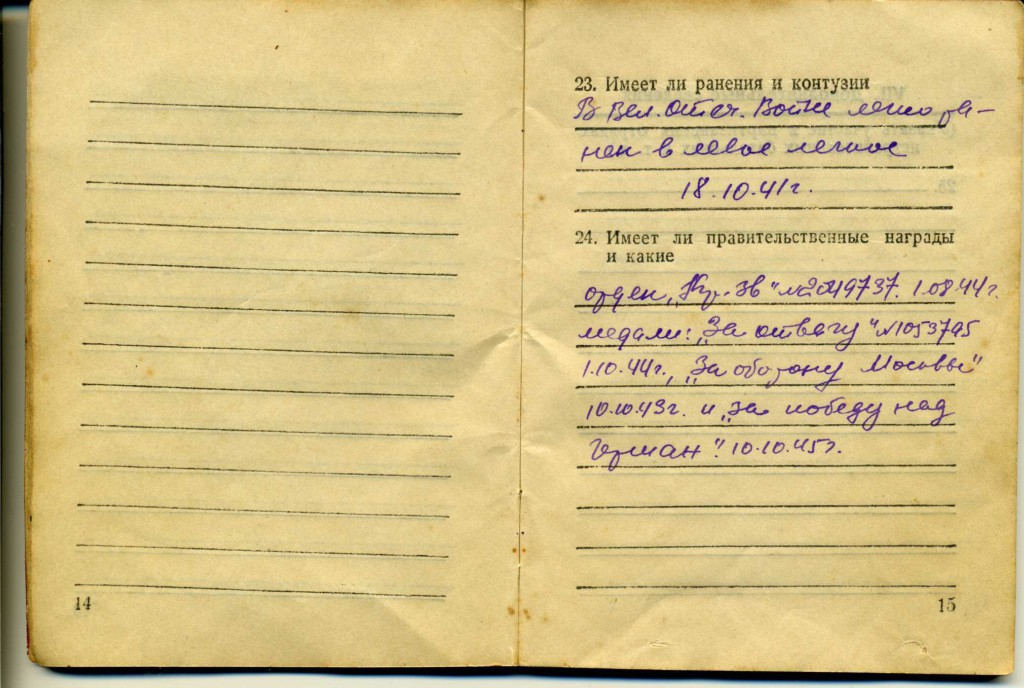 23. Имеет ли ранения и контузии
В Вел. Отеч. Войне легко ра-
нен в левое легкое
18.10.41г.
24. Имеет ли правительственные награды
и какие
орден „Кр. Зв" 1.08.44г.
медали: „За отвагу" №1053795
1.10.44г., „За оборону Москвы"
10.10.43г. и „за победу над
Герман". 10.10.45г.
14
15